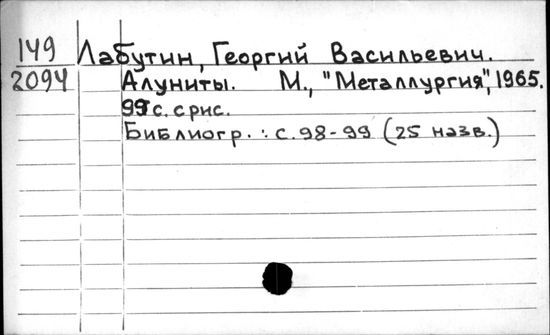 149 Лабутин, Георгий Васильевич.
2094 Алуниты. М., "Металлургия", 1965.
99 с. с рис.
Библиогр.: с. 98-99 (25 назв.)